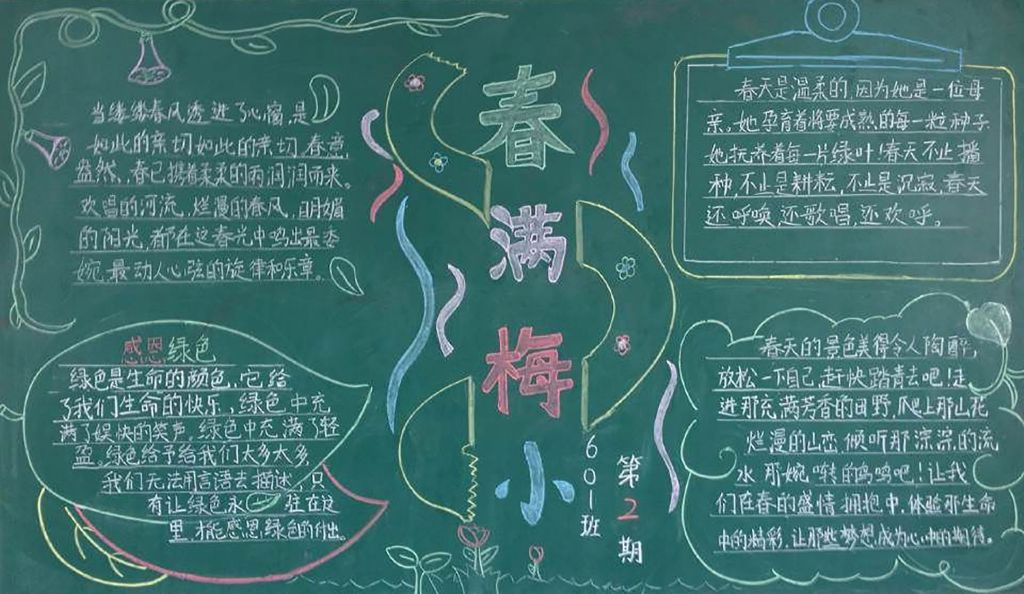 春满梅小
601班
第2期
当缕缕春风透进了心窗,是
如此的亲切如此的亲切,春意
盎然,春已携着柔柔的雨润润而来。
欢唱的河流,烂漫的春风,明媚
的阳光,都在这春光中鸣出最委
婉、最动人心弦的旋律和乐章。
感恩绿色
绿色是生命的颜色,它给
了我们生命的快乐,绿色中充
满了娱快的笑声,绿色中充满了轻
盈。绿色给予给我们太多太多,
我们无法用言语去描述,只
有让绿色永驻在这
里,才能感恩绿色的付出。
春天是温柔的,因为她是一位母
亲,她孕育着将要成熟的每一粒种子
她抚养着每一片绿叶!春天不止播
种,不止是耕耘,不止是沉寂,春天
还呼唤,还歌唱,还欢呼。
春天的景色美得令人陶醉,
放松一下自己,赶快踏青去吧!走
进那充满芳香的田野,爬上那山花
烂漫的山峦,倾听那淙淙的流
水,那婉啭的鸟鸣吧!让我
们在春的盛情拥抱中,体验那生命
中的精彩,让那些梦想成为心中的期待。